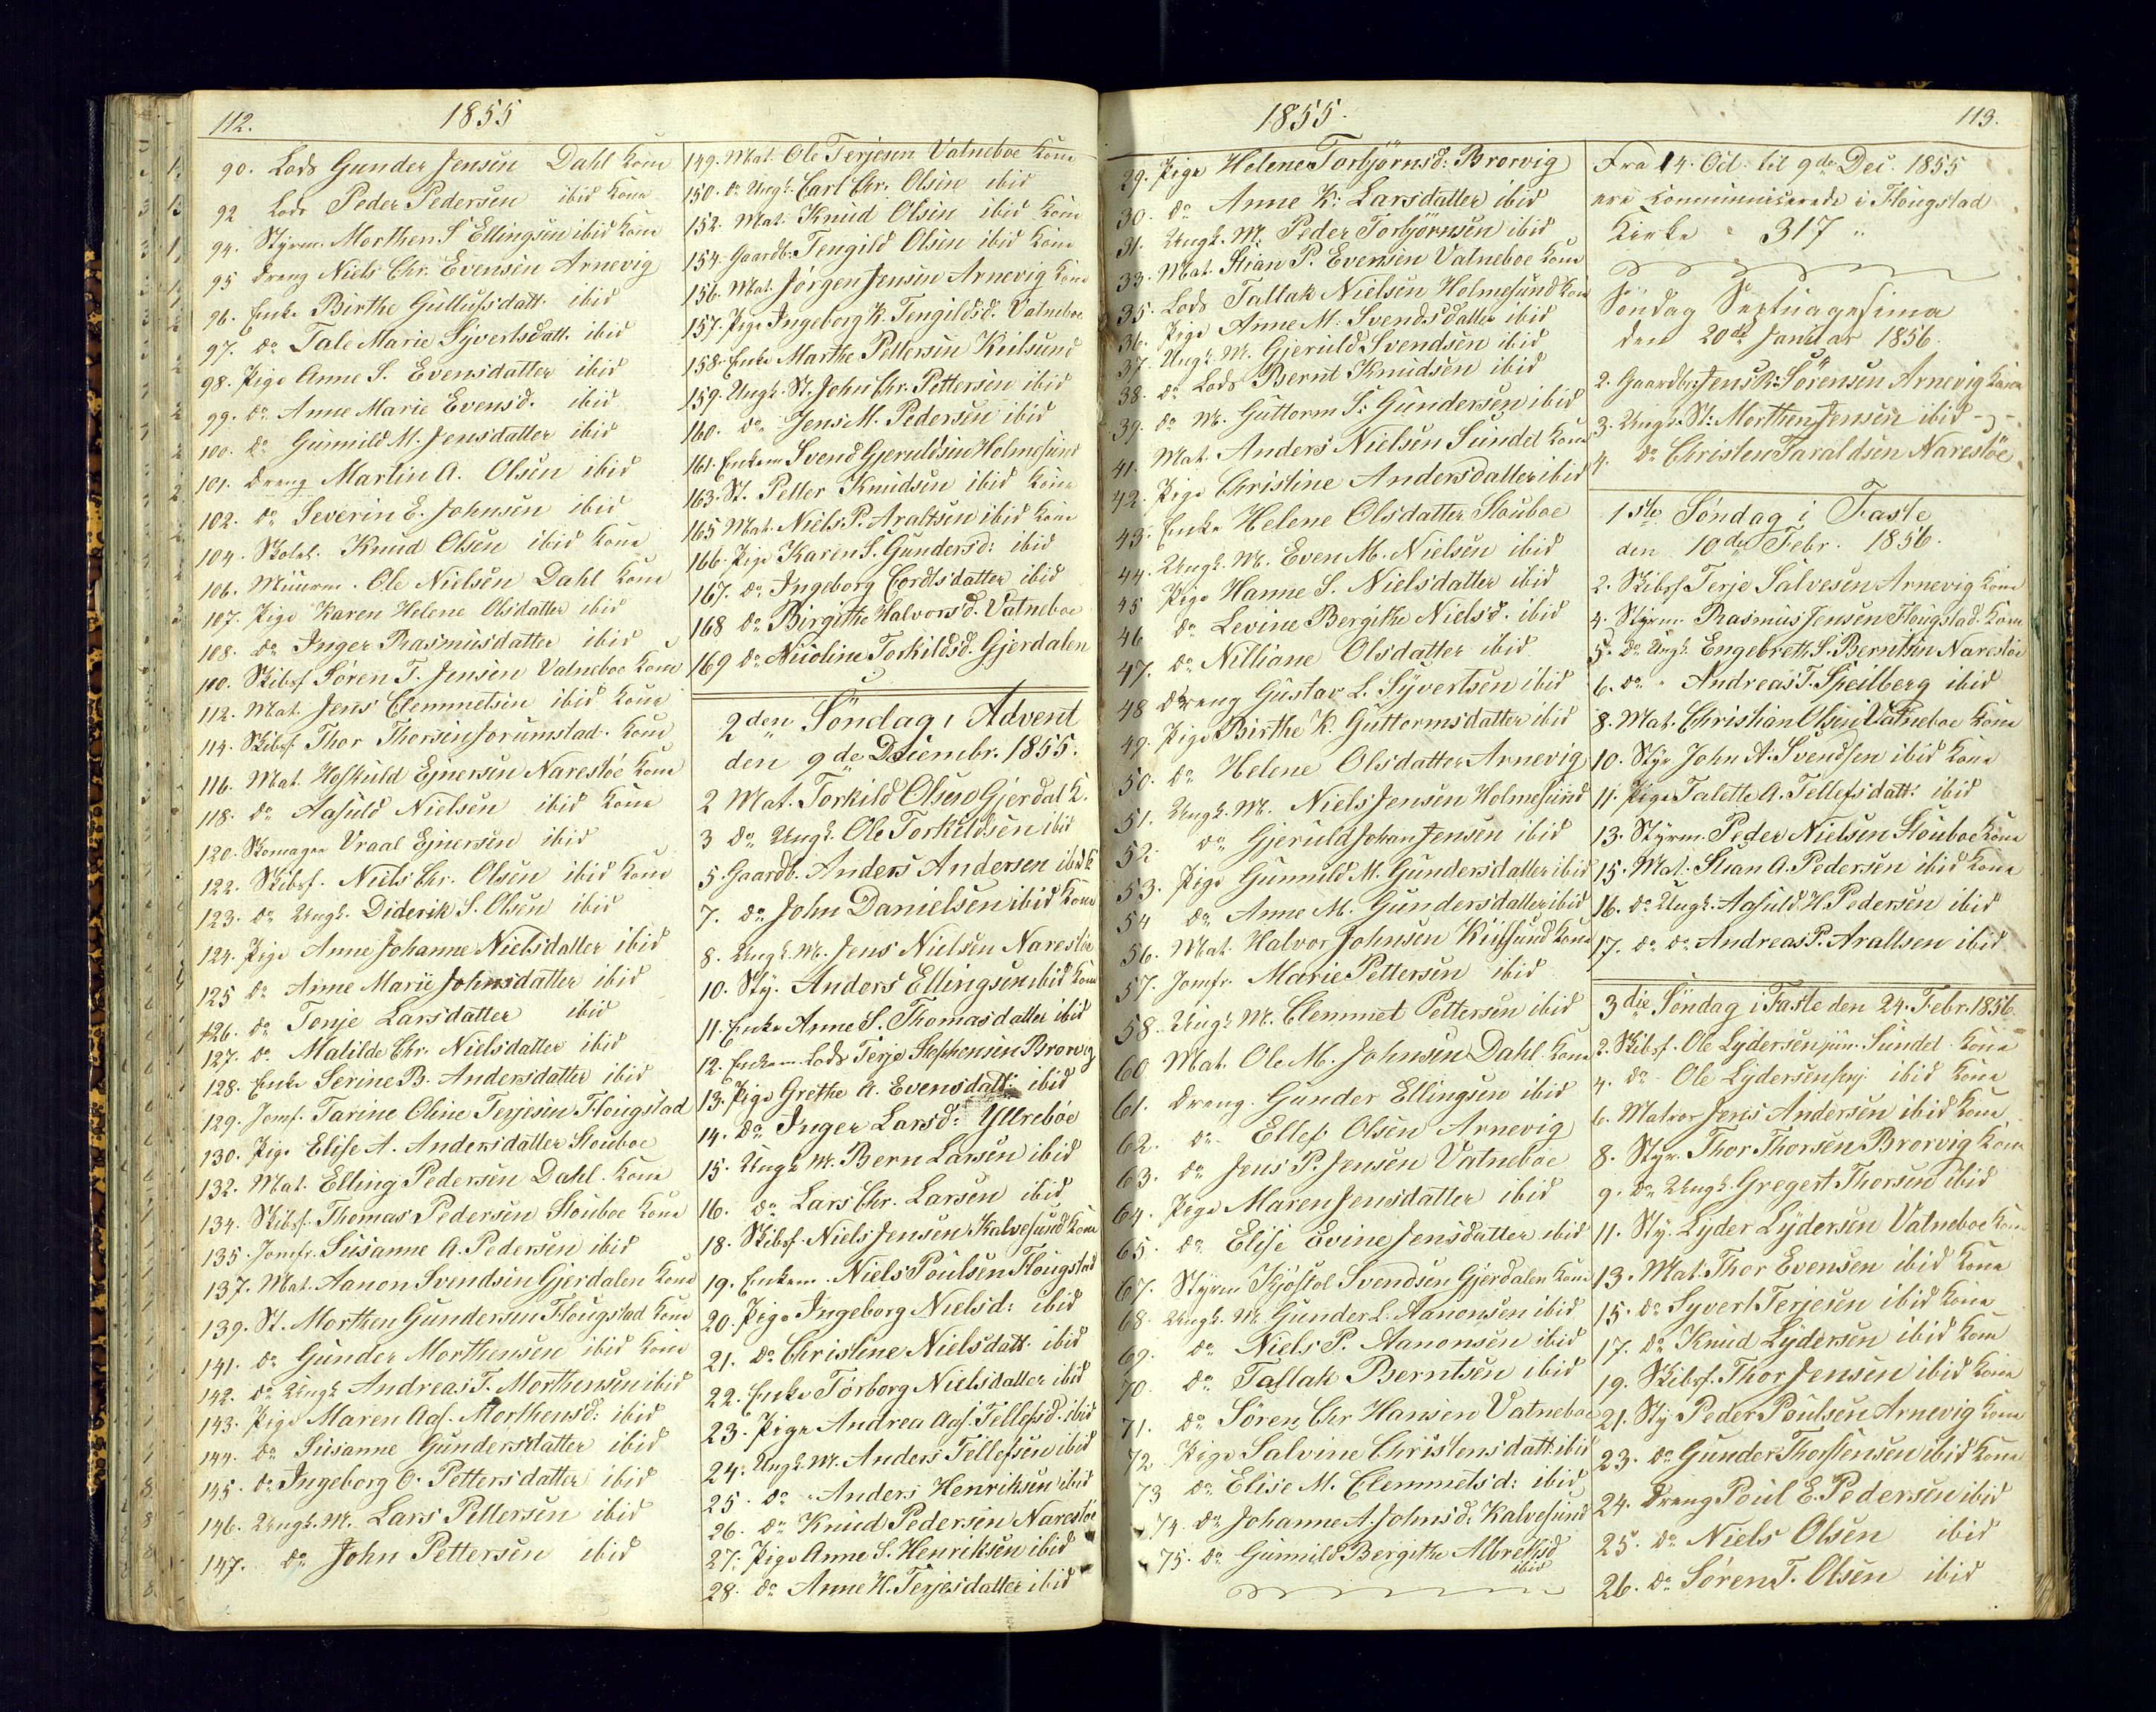 112. 1855
90. Lods Gunder Jensen Dahl Kone
92 Lods Peder Pedersen ibid Kone
94. Styrm. Morthen S Ellingsen ibid Kone
95 Dreng Niels Chr. Evensen Arnevig
96. Enke Birthe Gullufsdatt. ibid
97. do Tale Marie Syvertsdatt. ibid
98. Pige Anne S. Evensdatter ibid
99. do Anne Marie Evensd. ibid
100. do Gunnild M. Jensdatter ibid
101. Dreng Martin A. Olsen ibid
102. do Severin E. Johnsen ibid
104. Skolel. Knud Olsen ibid Kone
106. Muurm. Ole Nielsen Dahl Kone
107. Pige Karen Helene Olsdatter ibid
108. do Inger Rasmusdatter ibid
110. Skibsf Søren T. Jensen Vatneboe Kone
112. Mat. Jens Clemmetsen ibid Kone
114. Skibsf. Thor Thorsen Jorumstad. Kone
116. Mat. Hofkuld Ejnersen Narestöe Kone
118. do Aasuld Nielsen ibid Kone
120. Skomager Vraal Ejnersen ibid
122. Skibsf. Niels Chr. Olsen ibid Kone
123. do Ungk. Diderik S. Olsen ibid
124. Pige Anne Johanne Nielsdatter ibid
125 do Anne Marie Johnsdatter ibid
126. do Tonje Larsdatter ibid
127. do Matilde Chr. Nielsdatter ibid
128. Enke Serine B. Andersdatter ibid
129. Jomf. Tarine Oline Terjesen Flougstad
130. Pige Elise A. Andersdatter Stouboe
132. Mat. Elling Pedersen Dahl. Kone
134. Skibsf. Thomas Pedersen Stouboe Kone
135. Jomfr. Susanne A. Pedersen ibid
137. Mat. Aanon Svendsen Gjerdalen Kone
139. St. Morthen Gundersen Flougstad Kone
141. do Gunder Morthensen ibid Kone
142. do Ungk. Andreas T. Morthensen ibid
143. Pige Maren Aas. Morthensd: ibid
144. do Susanne Gundersdatter ibid
145. do Ingeborg O. Pettersdatter ibid
146. Ungk. M. Lars Pettersen ibid
147. do John Pettersen ibid
149. Mat. Ole Terjesen Vatneboe Kone
150. do Ungk. Carl Chr. Olsen ibid
152. Mat. Knud Olsen ibid Kone
154. Gaardb. Tengild Olsen ibid Kone
156. Mat. Jørgen Jensen Arnevig Kone
157. Pige Ingeborg K. Tengildsd. Vatneboe
158. Enke Marthe Pettersen Keilsund
159. Ungk. St. John Chr. Pettersen ibid
160. do Jens M. Pedersen ibid
161. Enkem Svend Gjeruldsen Holmesund
163. St. Petter Knudsen ibid Kone
165 Mat. Niels P. Araltsen ibid Kone
166. Pige Karen S. Gundersd: ibid
167. do Ingeborg Cordtsdatter ibid
168 do Birgithe Halvorsd. Vatneboe
169 do Nicoline Torkildsd. Gjerdalen
2den Söndag i Advent
den 9de Decembr. 1855.
2 Mat. Torkild Olsen Gjerdal K.
3 do Ungk. Ole Torkildsen ibid
5. Gaardb. Anders Andersen ibid K
7. do John Danielsen ibid Kone
8. Ungk. M. Jens Nielsen Narestöe
10. Sty. Anders Ellingsen ibid Kone
11. Enke Anne S. Thomasdatter ibid
12. Enkem. Lods Terje Stephensen Brorvig
13. Pige Grethe A. Evensdatt: ibid
14. do Inger Larsd: Yttreböe
15. Ungk M. Bern Larsen ibid
16. do Lars Chr. Larsen ibid
18. Skibsf. Niels Jensen Kalvesund Kone
19. Enkem. Niels Poulsen Flougstad
20. Pige Ingeborg Nielsd: ibid
21. do Christine Nielsdatt. ibid
22. Enke Torborg Nielsdatter ibid
23. Pige Andrea Aas. Tellefsd. ibid
24. Ungk. M. Anders Tellefsen ibid
25. do Anders Henriksen ibid
26. do Knud Pedersen Narestöe
27. Pige Anne S. Henriksen ibid
28. do Anne H. Terjesdatter ibid
1855. 113.
29. Pige Helene Torbjörnsd: Brorvig
30. do Anne K: Larsdatter ibid
31. Ungk. M: Peder Torbjörnsen ibid
33. Mat. Stian P. Evensen Vatneboe Kone
35. Lods Tallak Nielsen Holmesund Kone
36. Pige Anne M: Svendsdatter ibid
37. Ungk. M. Gjeruld Svendsen ibid
38. do Lods Bernt Knudsen ibid
39. do M. Guttorm S: Gundersen ibid
41. Mat. Anders Nielsen Sundet Kone
42. Pige Christine Andersdatter ibid
43. Enke Helene Olsdatter Stouboe
44. Ungk. M. Even M. Nielsen ibid
45 Pige Hanne S. Nielsdatter ibid
46 do Levine Bergithe Nielsd. ibid
47. do Nilliane Olsdatter ibid
48 Dreng Gustav L. Syvertsen ibid
49. Pige Birthe K. Guttormsdatter ibid
50. do Helene Olsdatter Arnevig
51. Ungk. M. Niels Jensen Holmesund
52 do Gjeruld Johan Jensen ibid
53. Pige Gunnild M. Gundersdatter ibid
54 do Anne M. Gundersdatter ibid
56. Mat. Halvor Johnsen Keilsund Kone
57. Jomfr. Marie Pettersen ibid
58. Ungk. M. Clemmet Pettersen ibid
60. Mat. Ole M. Johnsen Dahl. Kone
61. Dreng. Gunder Ellingsen ibid
62. do Ellef Olsen Arnevig
63. do Jens P. Jensen Vatneboe
64. Pige Maren Jensdatter ibid
65. do Elise Evine Jensdatter ibid
67. Styrm Kjöstol Svendsen Gjerdalen Kone
68. Ungk. M. Gunder L. Aanonsen ibid
69. do Niels P. Aanonsen ibid
70. do Tallak Berntsen ibid
71. do Sören Chr Hansen Vatneboe
72 Pige Salvine Christensdatt: ibid
73 do Elise M. Clemmetsd: ibid
74. do Johanne A. Johnsd. Kalvesund
75. do Gunnild Bergithe Albretsd
ibid
Fra 14. Oct. til 9de Dec. 1855
ere kommunicerede i Flougstad
Kirke 317
Söndag Septuagesima
den 20de Januar 1856.
2. Gaardbr. Jens R. Sörensen Arnevig Kone
3. Ungk. St: Morthen Jensen ibid
4. do Christen Taraldsen Narestöe
1ste Söndag i Faste
den 10de Febr. 1856.
2. Skibsf Terje Salvesen Arnevig Kone
4. Styrm. Rasmus Jensen Flougstad. Kone
5. do Ungk. Engebreth S. Berntsen Narestöe
6. do Andreas T. Speilberg ibid
8. Mat. Christian Olsen Vatneboe Kone
10. Styr John A. Svendsen ibid Kone
11. Pige Talette A. Tellefsdatt: ibid
13. Styrm. Peder Nielsen Stouboe Kone
15. Mat. Stian A. Pedersen ibid Kone
16. do Ungk. Aasuld H. Pedersen ibid
17. do do Andreas P. Araltsen ibid
3die Söndag i Faste den 24. Febr. 1856.
2. Skibsf. Ole Lydersen jun. Sundet. Kone
4. do Ole Lydersen senj ibid Kone
6. Matros Jens Andersen ibid Kone
8. Styr. Thor Thorsen Brorvig Kone
9. do Ungk. Gregert Thorsen ibid
11. Sty. Lyder Lydersen Vatneboe Kone
13. Mat. Thor Evensen ibid Kone
15. do Syvert Terjesen ibid Kone
17. do Knud Lydersen ibid Kone
19. Skibsf. Thor Jensen ibid Kone
21. Sty Peder Poulsen Arnevig Kone
23. do Gunder Thorstensen ibid Kone
24. Dreng Poul E. Pedersen ibid
25. do Niels Olsen ibid
26. do Sören T. Olsen ibid